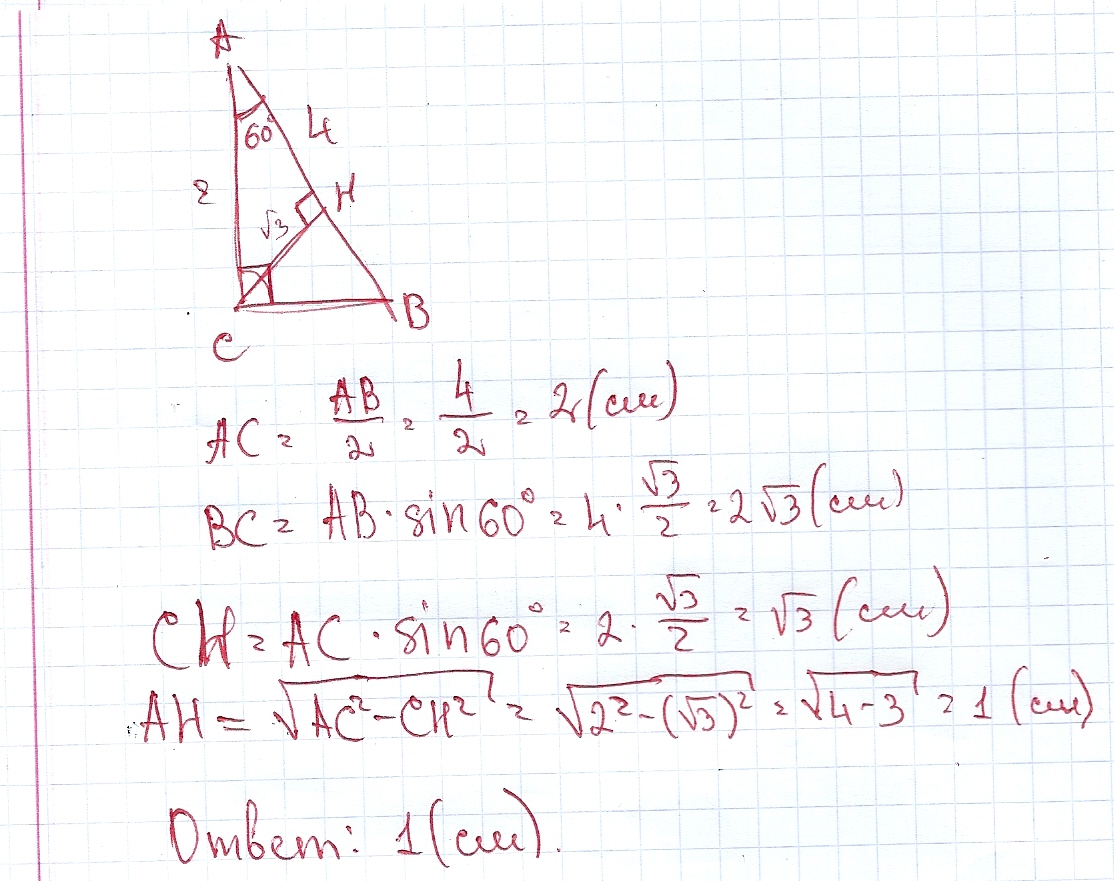 A
60°
4
2
H
√3
B
C
AC = AB/2 = 4/2 = 2 (см)
BC = AB · sin 60° = 4 · √3/2 = 2√3 (см)
CH = AC · sin 60° = 2 · √3/2 = √3 (см)
AH = √(AC² - CH²) = √(2² - (√3)²) = √(4 - 3) = 1 (см)
Ответ: 1 (см).